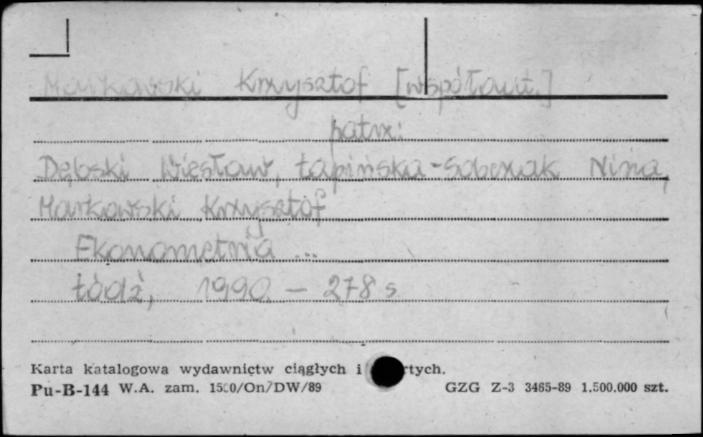 Markowski Krzysztof [współaut.]
patrz:
Dębski Wiesław, Łapińska-Sobczak Nina,
Markowski Krzysztof
Ekonometria ...
Łódź, 1990. - 278 s
Karta katalogowa wydawnictw ciągłych i rtych.
Pu-B-144 W.A. zam. /On/DW/89 GZG Z-3 3465-89 1.500.000 szt.